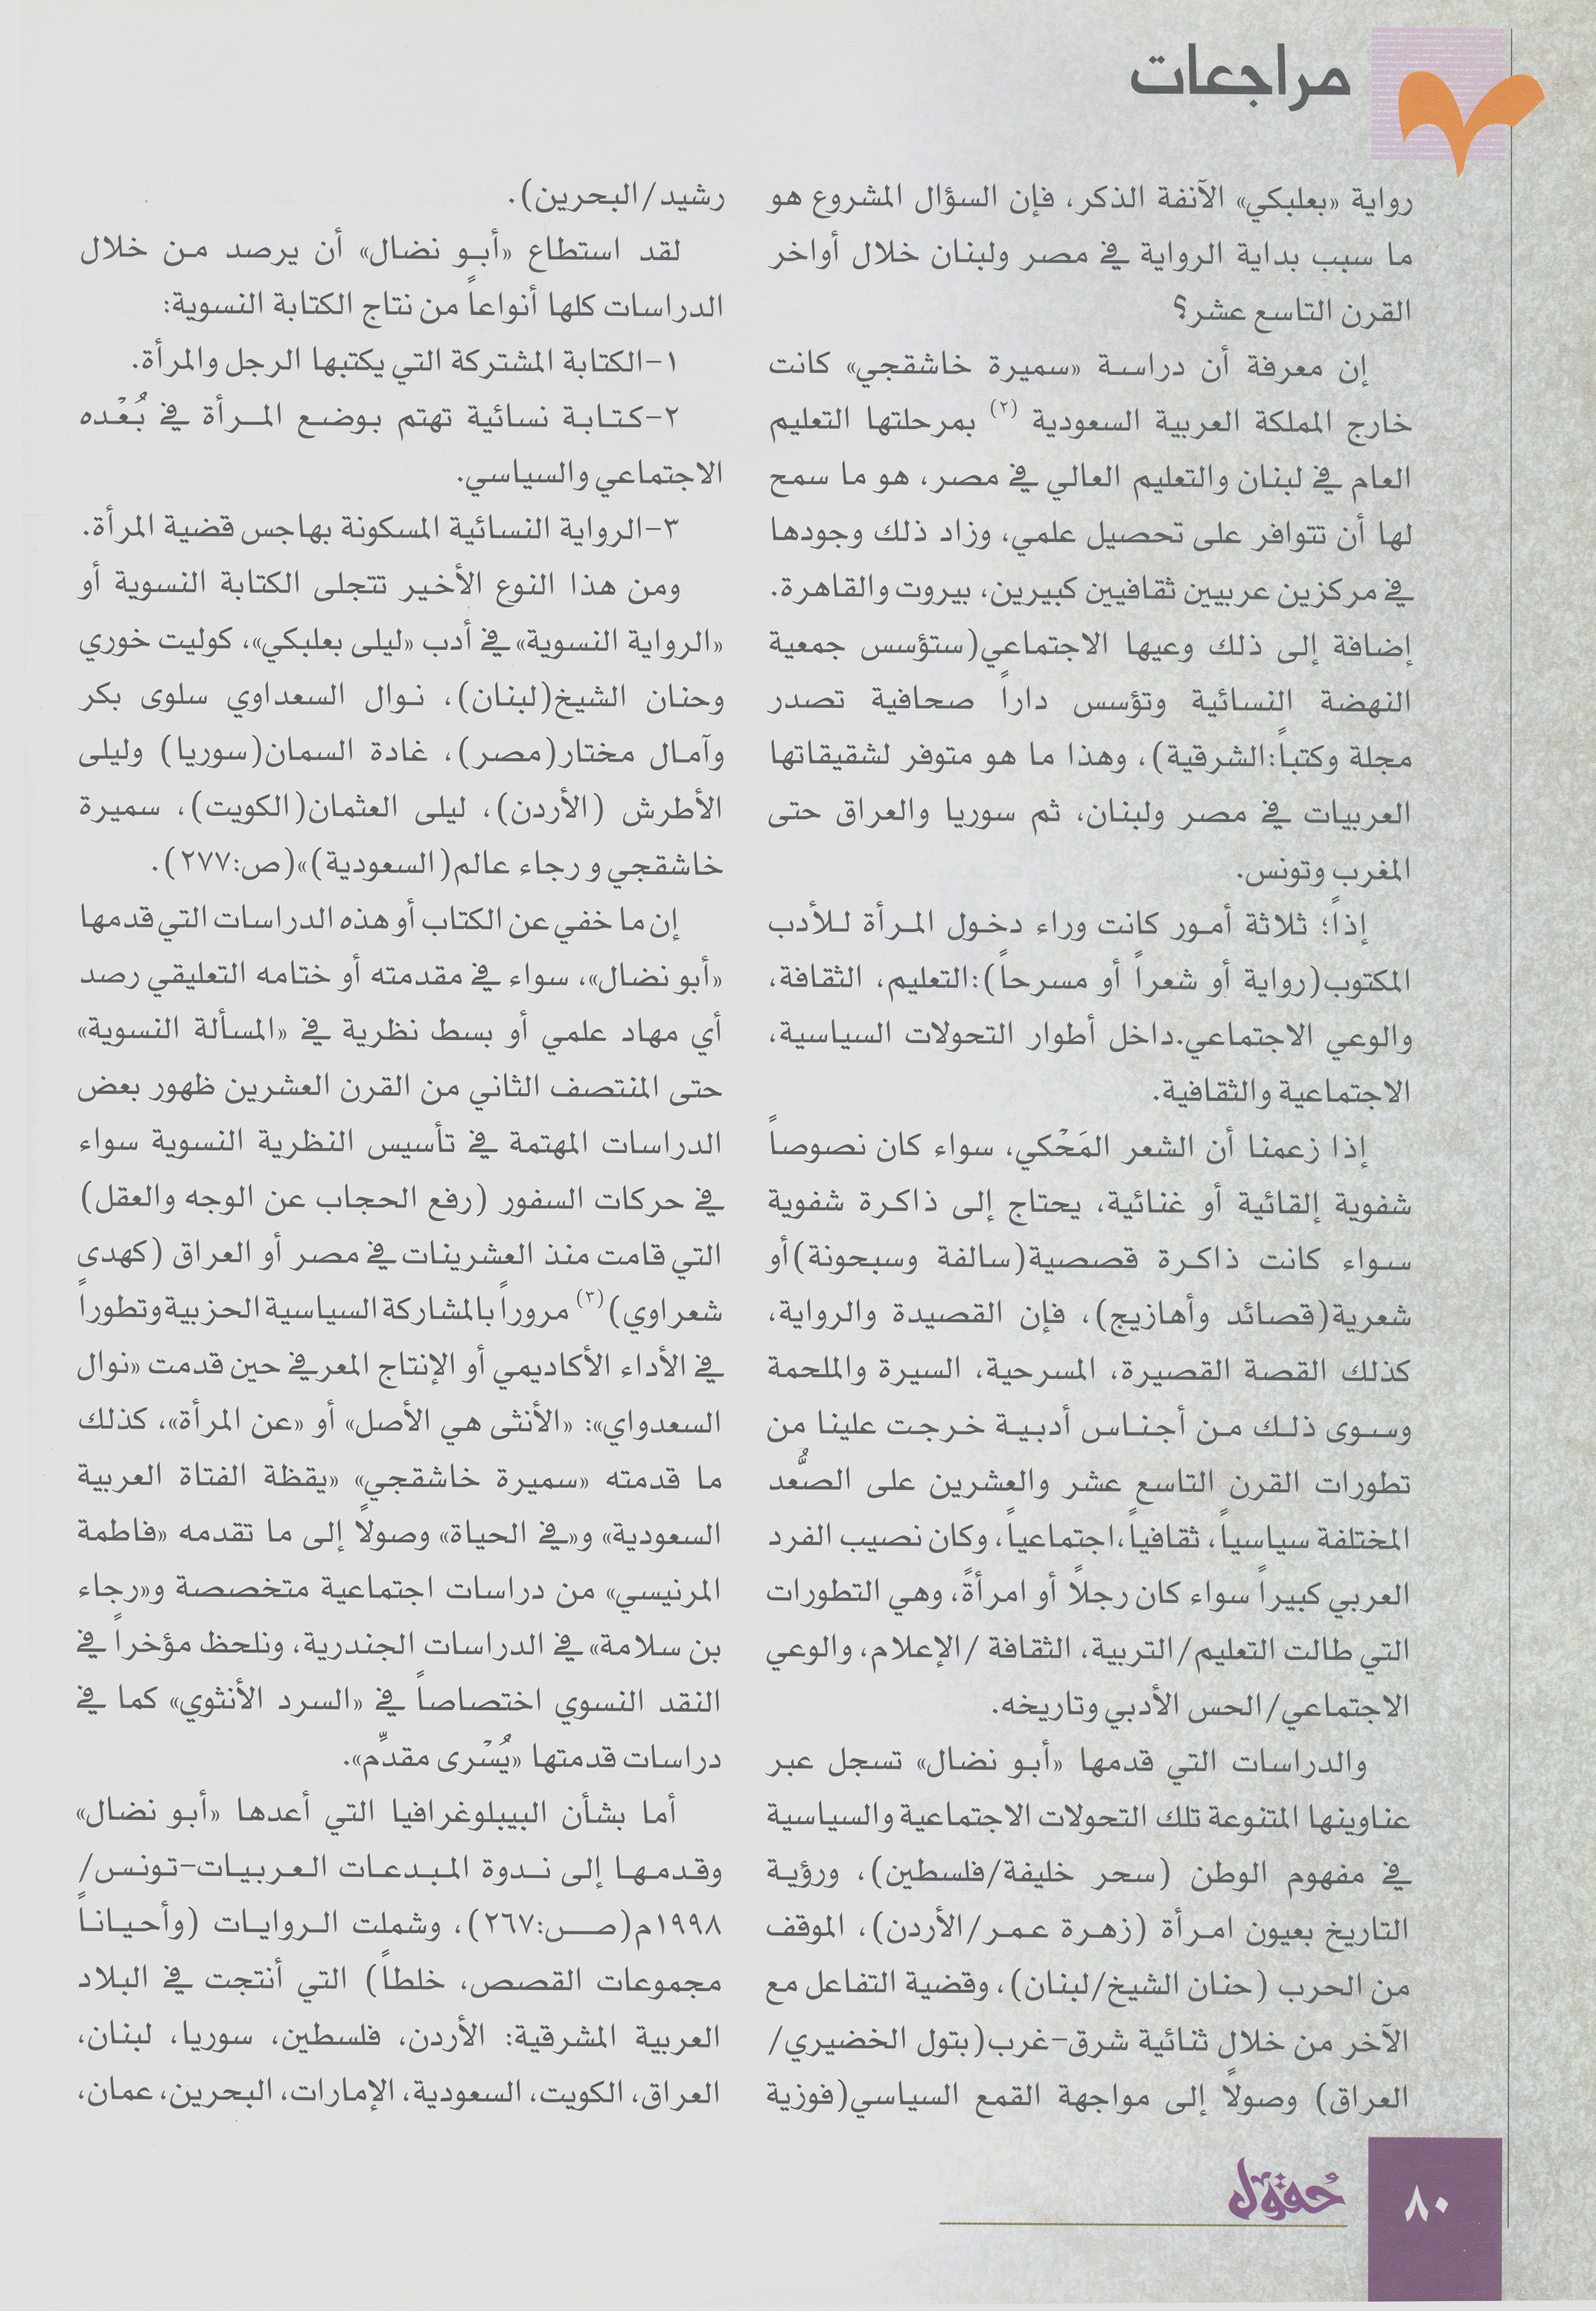 مراجعات
رواية «بعلبكي» الآنفة الذكر، فإن السؤال المشروع هو
ما سبب بداية الرواية في مصر ولبنان خلال أواخر
القرن التاسع عشر؟
إن معرفة أن دراسة «سميرة خاشقجي» كانت
خارج المملكة العربية السعودية (٢) بمرحلتها التعليم
العام في لبنان والتعليم العالي في مصر، هو ما سمح
لها أن تتوافر على تحصيل علمي، وزاد ذلك وجودها
في مركزين عربيين ثقافيين كبيرين، بيروت والقاهرة.
إضافة إلى ذلك وعيها الاجتماعي(ستؤسس جمعية
النهضة النسائية وتؤسس داراً صحافية تصدر
مجلة وكتباً:الشرقية)، وهذا ما هو متوفر لشقيقاتها
العربيات في مصر ولبنان، ثم سوريا والعراق حتى
المغرب وتونس.
إذاً؛ ثلاثة أمور كانت وراء دخول المرأة للأدب
المكتوب(رواية أو شعراً أو مسرحاً):التعليم، الثقافة،
والوعي الاجتماعي.داخل أطوار التحولات السياسية،
الاجتماعية والثقافية.
إذا زعمنا أن الشعر المَحْكي، سواء كان نصوصاً
شفوية إلقائية أو غنائية، يحتاج إلى ذاكرة شفوية
سواء كانت ذاكرة قصصية(سالفة وسبحونة)أو
شعرية(قصائد وأهازيج)، فإن القصيدة والرواية،
كذلك القصة القصيرة، المسرحية، السيرة والملحمة
وسوى ذلك من أجناس أدبية خرجت علينا من
تطورات القرن التاسع عشر والعشرين على الصُّعد
المختلفة سياسياً، ثقافياً،اجتماعياً، وكان نصيب الفرد
العربي كبيراً سواء كان رجلاً أو امرأةً، وهي التطورات
التي طالت التعليم/التربية، الثقافة /الإعلام، والوعي
الاجتماعي/الحس الأدبي وتاريخه.
والدراسات التي قدمها «أبو نضال» تسجل عبر
عناوينها المتنوعة تلك التحولات الاجتماعية والسياسية
في مفهوم الوطن (سحر خليفة/فلسطين)، ورؤية
التاريخ بعيون امرأة (زهرة عمر/الأردن)، الموقف
من الحرب (حنان الشيخ/لبنان)، وقضية التفاعل مع
الآخر من خلال ثنائية شرق-غرب(بتول الخضيري/
العراق) وصولاً إلى مواجهة القمع السياسي(فوزية
رشيد/البحرين).
لقد استطاع «أبو نضال» أن يرصد من خلال
الدراسات كلها أنواعاً من نتاج الكتابة النسوية:
١-الكتابة المشتركة التي يكتبها الرجل والمرأة.
٢-كتابة نسائية تهتم بوضع المرأة في بُعْده
الاجتماعي والسياسي.
٣-الرواية النسائية المسكونة بهاجس قضية المرأة.
ومن هذا النوع الأخير تتجلى الكتابة النسوية أو
«الرواية النسوية» في أدب «ليلى بعلبكي»، كوليت خوري
وحنان الشيخ(لبنان)، نوال السعداوي سلوى بكر
وآمال مختار(مصر)، غادة السمان(سوريا) وليلى
الأطرش (الأردن)، ليلى العثمان(الكويت)، سميرة
خاشقجي و رجاء عالم(السعودية)»(ص:٢٧٧).
إن ما خفي عن الكتاب أو هذه الدراسات التي قدمها
«أبو نضال»، سواء في مقدمته أو ختامه التعليقي رصد
أي مهاد علمي أو بسط نظرية في «المسألة النسوية»
حتى المنتصف الثاني من القرن العشرين ظهور بعض
الدراسات المهتمة في تأسيس النظرية النسوية سواء
في حركات السفور (رفع الحجاب عن الوجه والعقل)
التي قامت منذ العشرينات في مصر أو العراق (كهدى
شعراوي)(٣) مروراً بالمشاركة السياسية الحزبية وتطوراً
في الأداء الأكاديمي أو الإنتاج المعرفي حين قدمت «نوال
السعدواي»: «الأنثى هي الأصل» أو «عن المرأة»، كذلك
ما قدمته «سميرة خاشقجي» «يقظة الفتاة العربية
السعودية» و«في الحياة» وصولاً إلى ما تقدمه «فاطمة
المرنيسي» من دراسات اجتماعية متخصصة و«رجاء
بن سلامة» في الدراسات الجندرية، ونلحظ مؤخراً في
النقد النسوي اختصاصاً في «السرد الأنثوي» كما في
دراسات قدمتها «يُسْرى مقدِّم».
أما بشأن الببيلوغرافيا التي أعدها «أبو نضال»
وقدمها إلى ندوة المبدعات العربيات-تونس/
١٩٩٨م(ص:٢٦٧)، وشملت الروايات (وأحياناً
مجموعات القصص، خلطاً) التي أنتجت في البلاد
العربية المشرقية: الأردن، فلسطين، سوريا، لبنان،
العراق، الكويت، السعودية، الإمارات، البحرين، عمان،
حُقول
٨٠